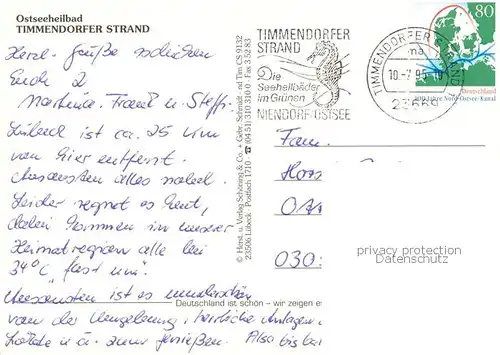 Ostseeheilbad
TIMMENDORFER STRAND
Herzl. Grüße schicken
Euch 2
Martina, Frank u. Steffi.
Lübeck ist ca. 25 km
von hier entfernt.
Ansonsten alles nobel.
Leider regnet es heut,
dabei kommen in unserer
Heimatregion alle bei
34°C fast um.
Ansonsten ist es
von der Umgebung, herrliche Anlagen,
u.a. zum genießen. Also bis bald
© Herst. u. Verlag Schöning & Co. + Gebr. Schmidt
23506 Lübeck · Postfach 1710 · ☎ (04 51) 310 310 · Fax 3 52 83
Tim CS 9132
Deutschland ist schön – wir zeigen es
TIMMENDORFER
STRAND
Die
Seeheilbäder
im Grünen
NIENDORF/OSTSEE
TIMMENDORFER STRAND
10.-7.95
23669
80
Deutschland
100 Jahre Nord-Ostsee-Kanal
Fam.
030
privacy protection
Datenschutz